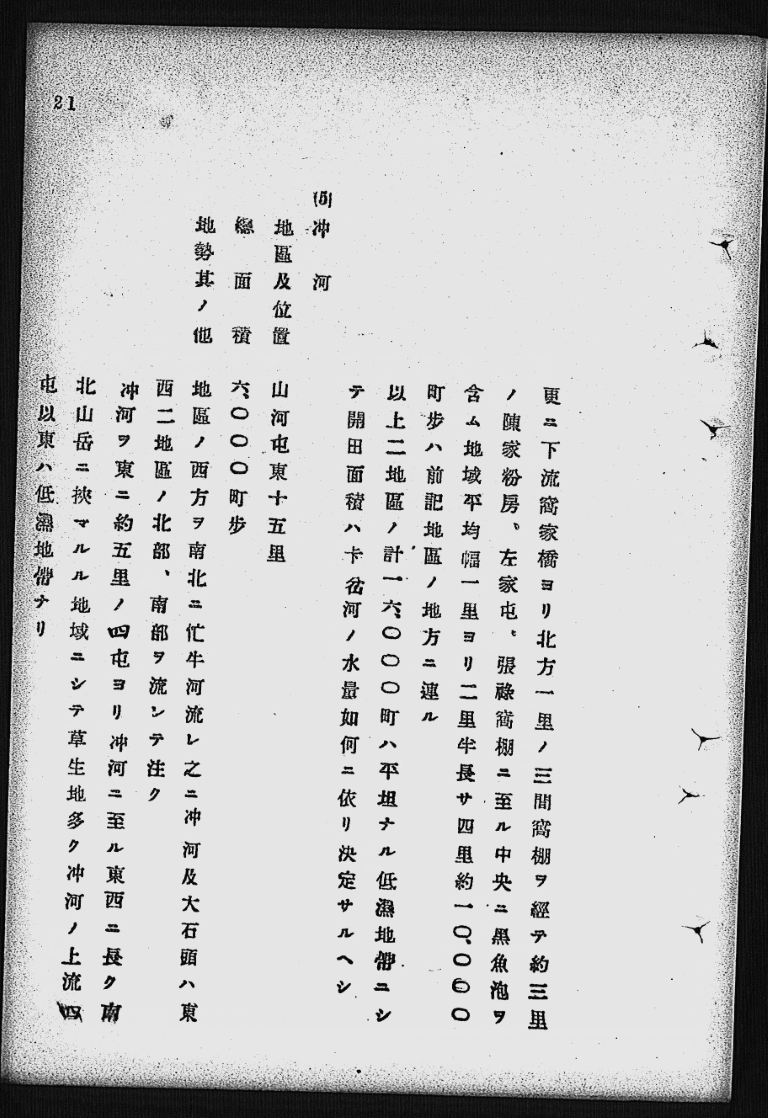 21
更ニ下流窩家橋ヨリ北方一里ノ三間窩棚ヲ經テ約三里
ノ陳家粉房、左家屯、張祿窩棚ニ至ル中央ニ黒魚泡ヲ
含ム地域平均幅一里ヨリ二里半長サ四里約一〇、〇〇〇
町歩ハ前記地區ノ地方ニ連ル
以上二地區ノ計一六、〇〇〇町ハ平坦ナル低濕地帶ニシ
テ開田面積ハ卡岔河ノ水量如何ニ依リ決定サルヘシ
(5)冲河
地區及位置 山河屯東十五里
總面積 六、〇〇〇町歩
地勢其ノ他 地區ノ西方ヲ南北ニ忙牛河流レ之ニ冲河及大石頭ハ東
西二地區ノ北部、南部ヲ流シテ注ク
冲河ヲ東ニ約五里ノ四屯ヨリ冲河ニ至ル東西ニ長ク南
北山岳ニ挾マルル地域ニシテ草生地多ク冲河ノ上流四
屯以東ハ低濕地帶ナリ